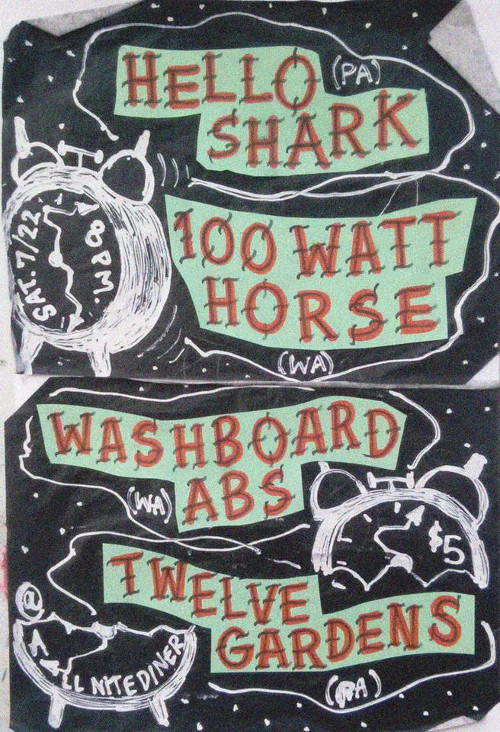 HELLO
(PA)
SHARK
SAT. 7/22
8 P.M.
100 WATT
HORSE
(WA)
WASHBOARD
(WA)
ABS
$5
TWELVE
GARDENS
(PA)
@
A
ALL NITE DINER